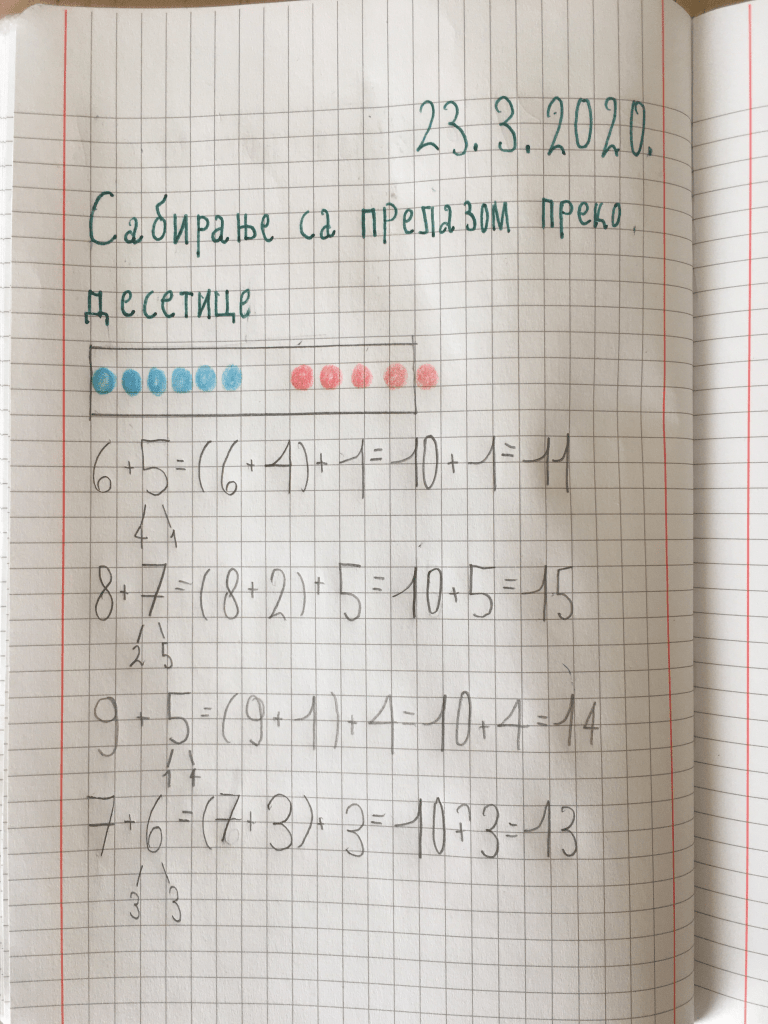 23. 3. 2020.
Сабирање са прелазом преко
десетице
6+5=(6+4)+1=10+1=11
4 1
8+7=(8+2)+5=10+5=15
2 5
9+5=(9+1)+4=10+4=14
1 4
7+6=(7+3)+3=10+3=13
3 3